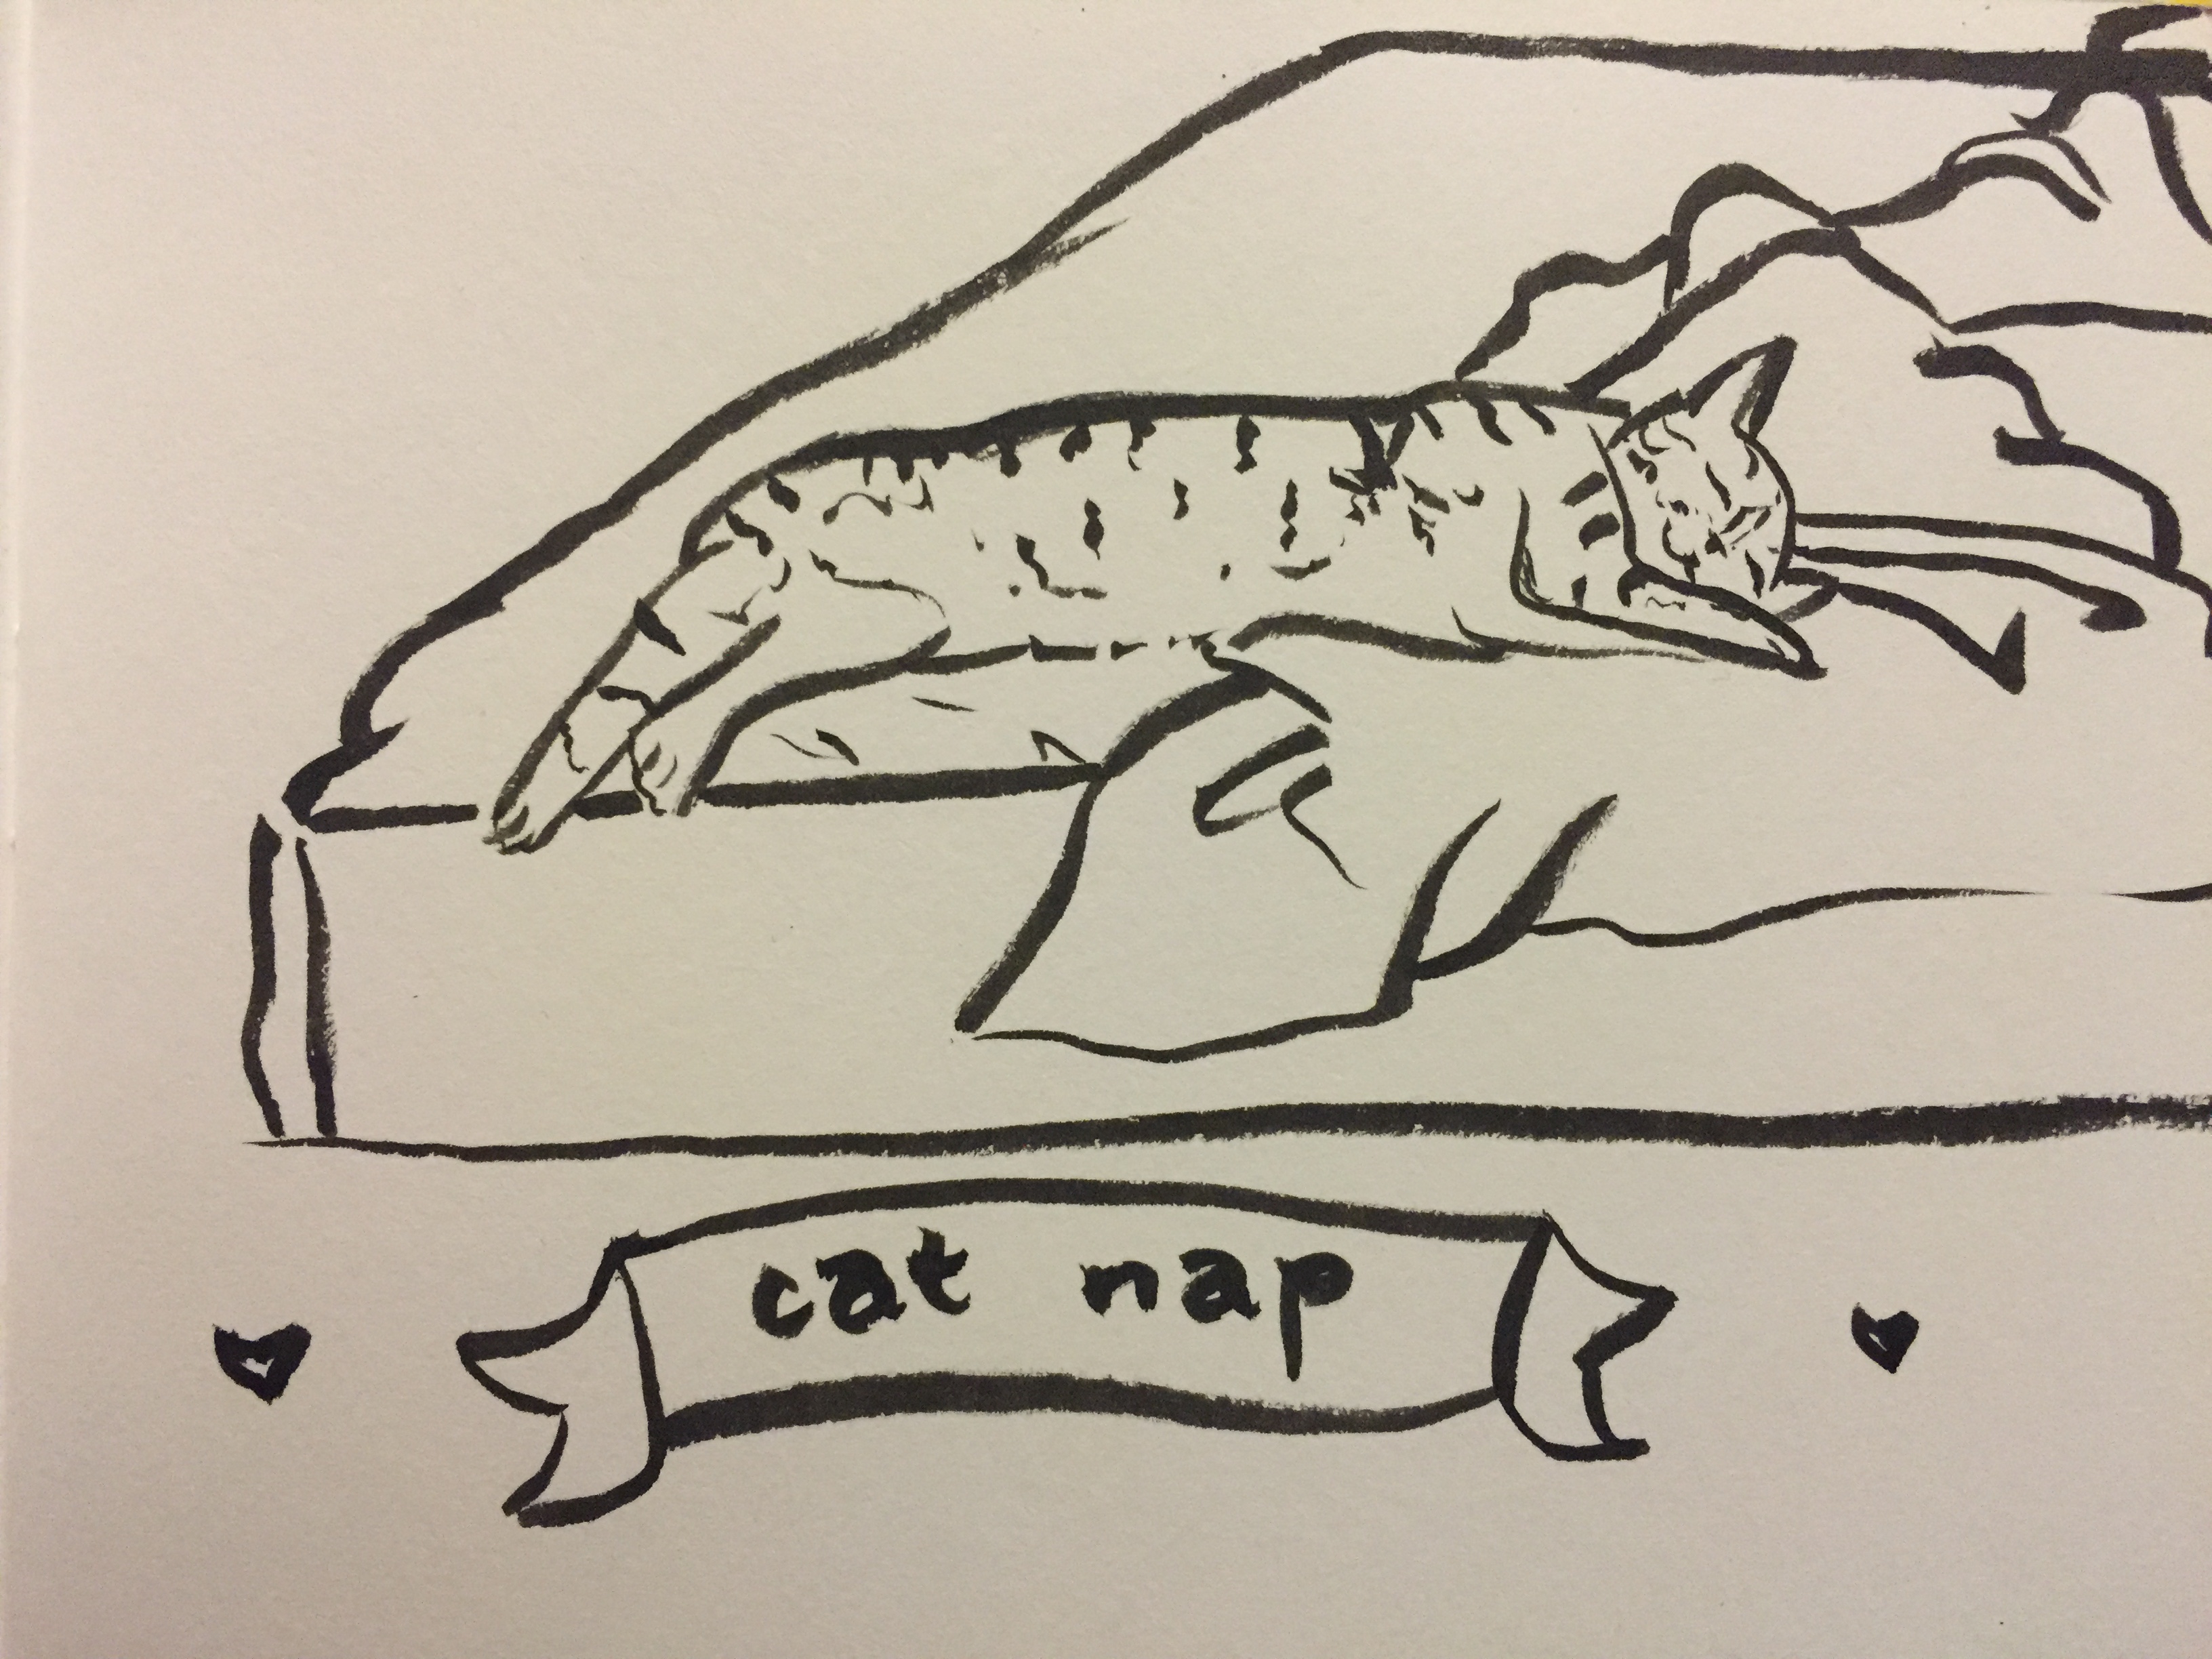 cat nap